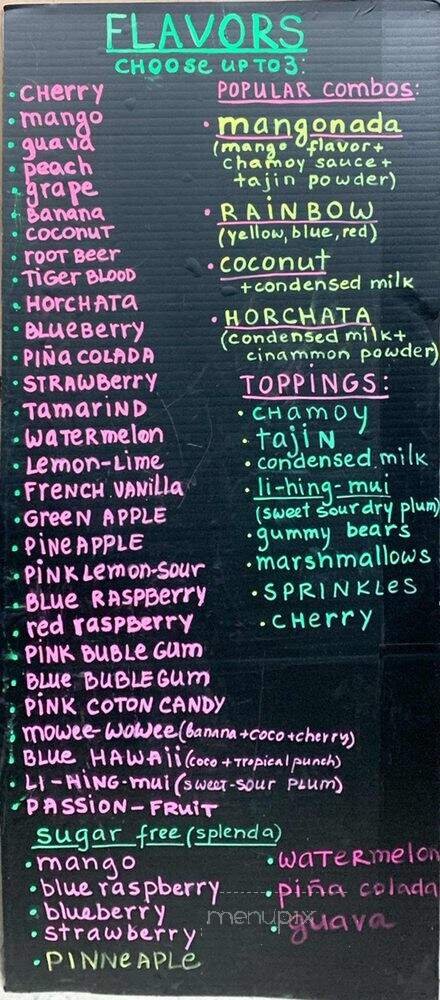 FLAVORS
CHOOSE UP TO 3:
• CHERRY
• mango
• guava
• peach
• grape
• Banana
• COCONUT
• ROOT BEER
• TIGER BLOOD
• HORCHATA
• BLUEBERRY
• PIÑA COLADA
• STRAWBERRY
• TAMARIND
• WATERMELON
• Lemon-Lime
• FRENCH VANILLA
• GREEN APPLE
• PINEAPPLE
• PINK Lemon-SOUR
• BLUE RASPBERRY
• red raspberry
• PINK BUBLE GUM
• BLUE BUBLE GUM
• PINK COTON CANDY
• mowee-wowee (Banana+coco+cherry)
• BLUE HAWAII (coco + Tropical punch)
• LI-HING-mui (SWEET-SOUR PLUM)
• PASSION-FRUIT
POPULAR COMBOS:
• mangonada
(mango flavor+
chamoy sauce+
tajin powder)
• RAINBOW
(yellow, blue, red)
• coconut
+condensed milk
• HORCHATA
(condensed milk+
cinammon powder)
TOPPINGS:
• CHAMOY
• tajin
• condensed milk
• li-hing-mui
(sweet sour dry plum)
• gummy bears
• marshmallows
• SPRINKLES
• CHERRY
sugar free (splenda)
• mango
• blue raspberry
• blueberry
• strawberry
• PINNEAPLE
• WATERMELON
• piña colada
• guava
menupix